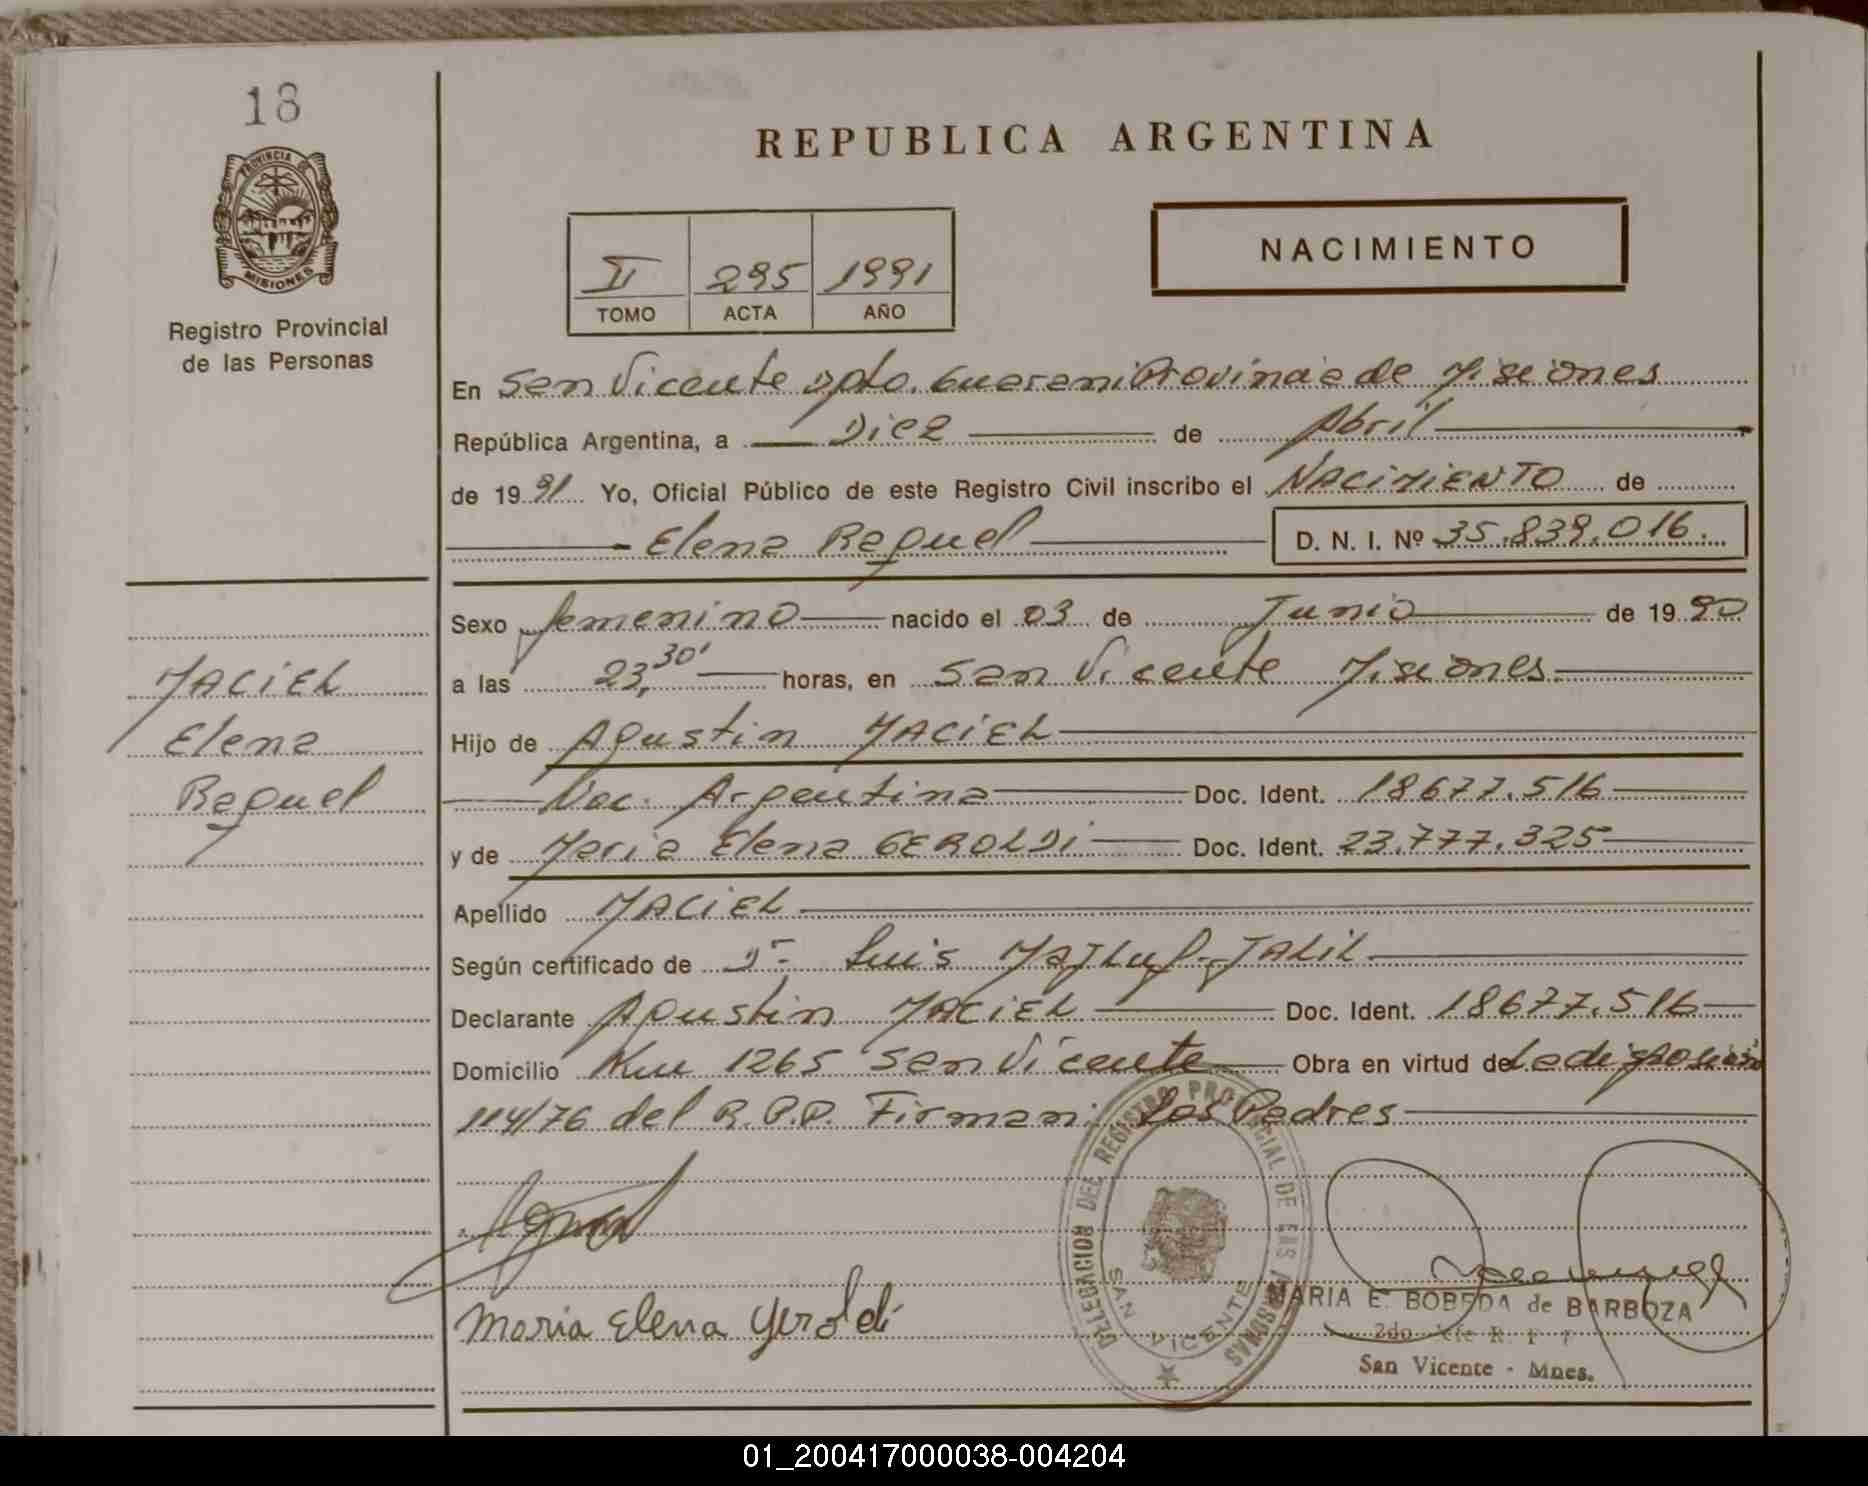 18
PROVINCIA DE
MISIONES
Registro Provincial
de las Personas
REPUBLICA ARGENTINA
NACIMIENTO
II 295 1991
TOMO ACTA AÑO
En San Vicente Dpto. Guarani Provincia de Misiones
República Argentina, a Diez de Abril
de 19 91 Yo, Oficial Público de este Registro Civil inscribo el NACIMIENTO de
Elena Raquel D. N. I. Nº 35.839.016.
Sexo femenino nacido el 03 de Junio de 19 90
a las 23,30' horas, en San Vicente Misiones
Hijo de Agustin MACIEL
Nac. Argentina Doc. Ident. 18677.516
y de Maria Elena GEROLDI Doc. Ident. 23.777.325
Apellido MACIEL
Según certificado de Dr. Luis MAJLUf-JALIL
Declarante Agustin MACIEL Doc. Ident. 18677.516
Domicilio Km 1265 San Vicente Obra en virtud de La disposición
114/76 del R.P.P. Firman: Los Padres
MACIEL
Elena
Raquel
Maria Elena Geroldi
DELEGACION DEL REGISTRO PROVINCIAL DE LAS PERSONAS
SAN VICENTE
MARIA E. BOBEDA de BARBOZA
2do
San Vicente - Mnes.
01_200417000038-004204